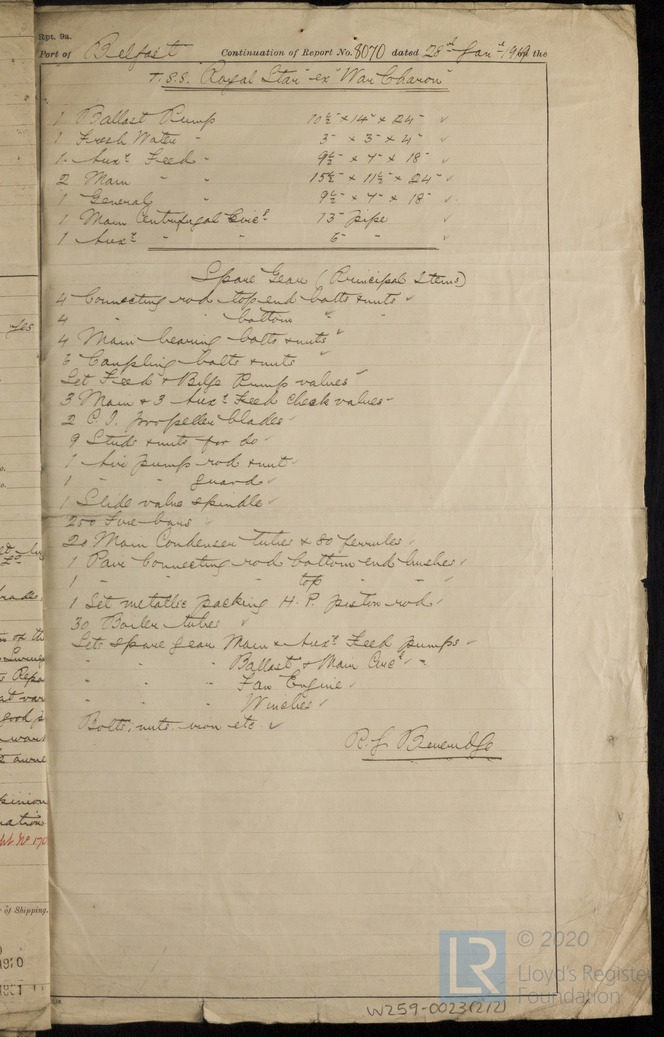 Rpt. 9a.
Port of Belfast Continuation of Report No. 8070 dated 28th Jany 1919 the
T.S.S. "Royal Star" ex "War Charon"
1 Ballast Pump 10½" × 14" × 24" ✓
1 Fresh Water " 3" × 3" × 4" ✓
1 Auxy Feed " 9½" × 7" × 18" ✓
2 Main " " 15½" × 11½" × 24" ✓
1 General " 9½" × 7" × 18" ✓
1 Main Centrifugal Circg 13" pipe ✓
1 Auxy " " 6" " ✓
Spare Gear (Principal Items)
4 Connecting rod top end bolts & nuts ✓
4 " " bottom " " ✓
4 Main bearing bolts & nuts ✓
6 Coupling bolts & nuts ✓
Set Feed & Bilge Pump valves ✓
3 Main & 3 Auxy Feed Check valves ✓
2 C.I. propeller blades ✓
9 Studs & nuts for do ✓
1 Air pump rod & nut ✓
1 " " guard ✓
1 Slide valve spindle ✓
250 Fire bars ✓
20 Main Condenser tubes & 80 ferrules ✓
1 Pair Connecting rod bottom end bushes ✓
1 " " " top " " ✓
1 Set metallic packing H.P. piston rod ✓
30 Boiler tubes ✓
Sets spare gear Main & Auxy Feed pumps ✓
" " " Ballast & Main Circg ✓ "
" " " Fan Engine ✓
" " " Winches ✓
Bolts, nuts iron etc ✓
R. J. Beveridge
yes
of the
Repo
at var
good p
want
owne
pinion
ation
of Shipping.
1910
W259-0023(2/2)
LR © 2020
Lloyd's Register
Foundation